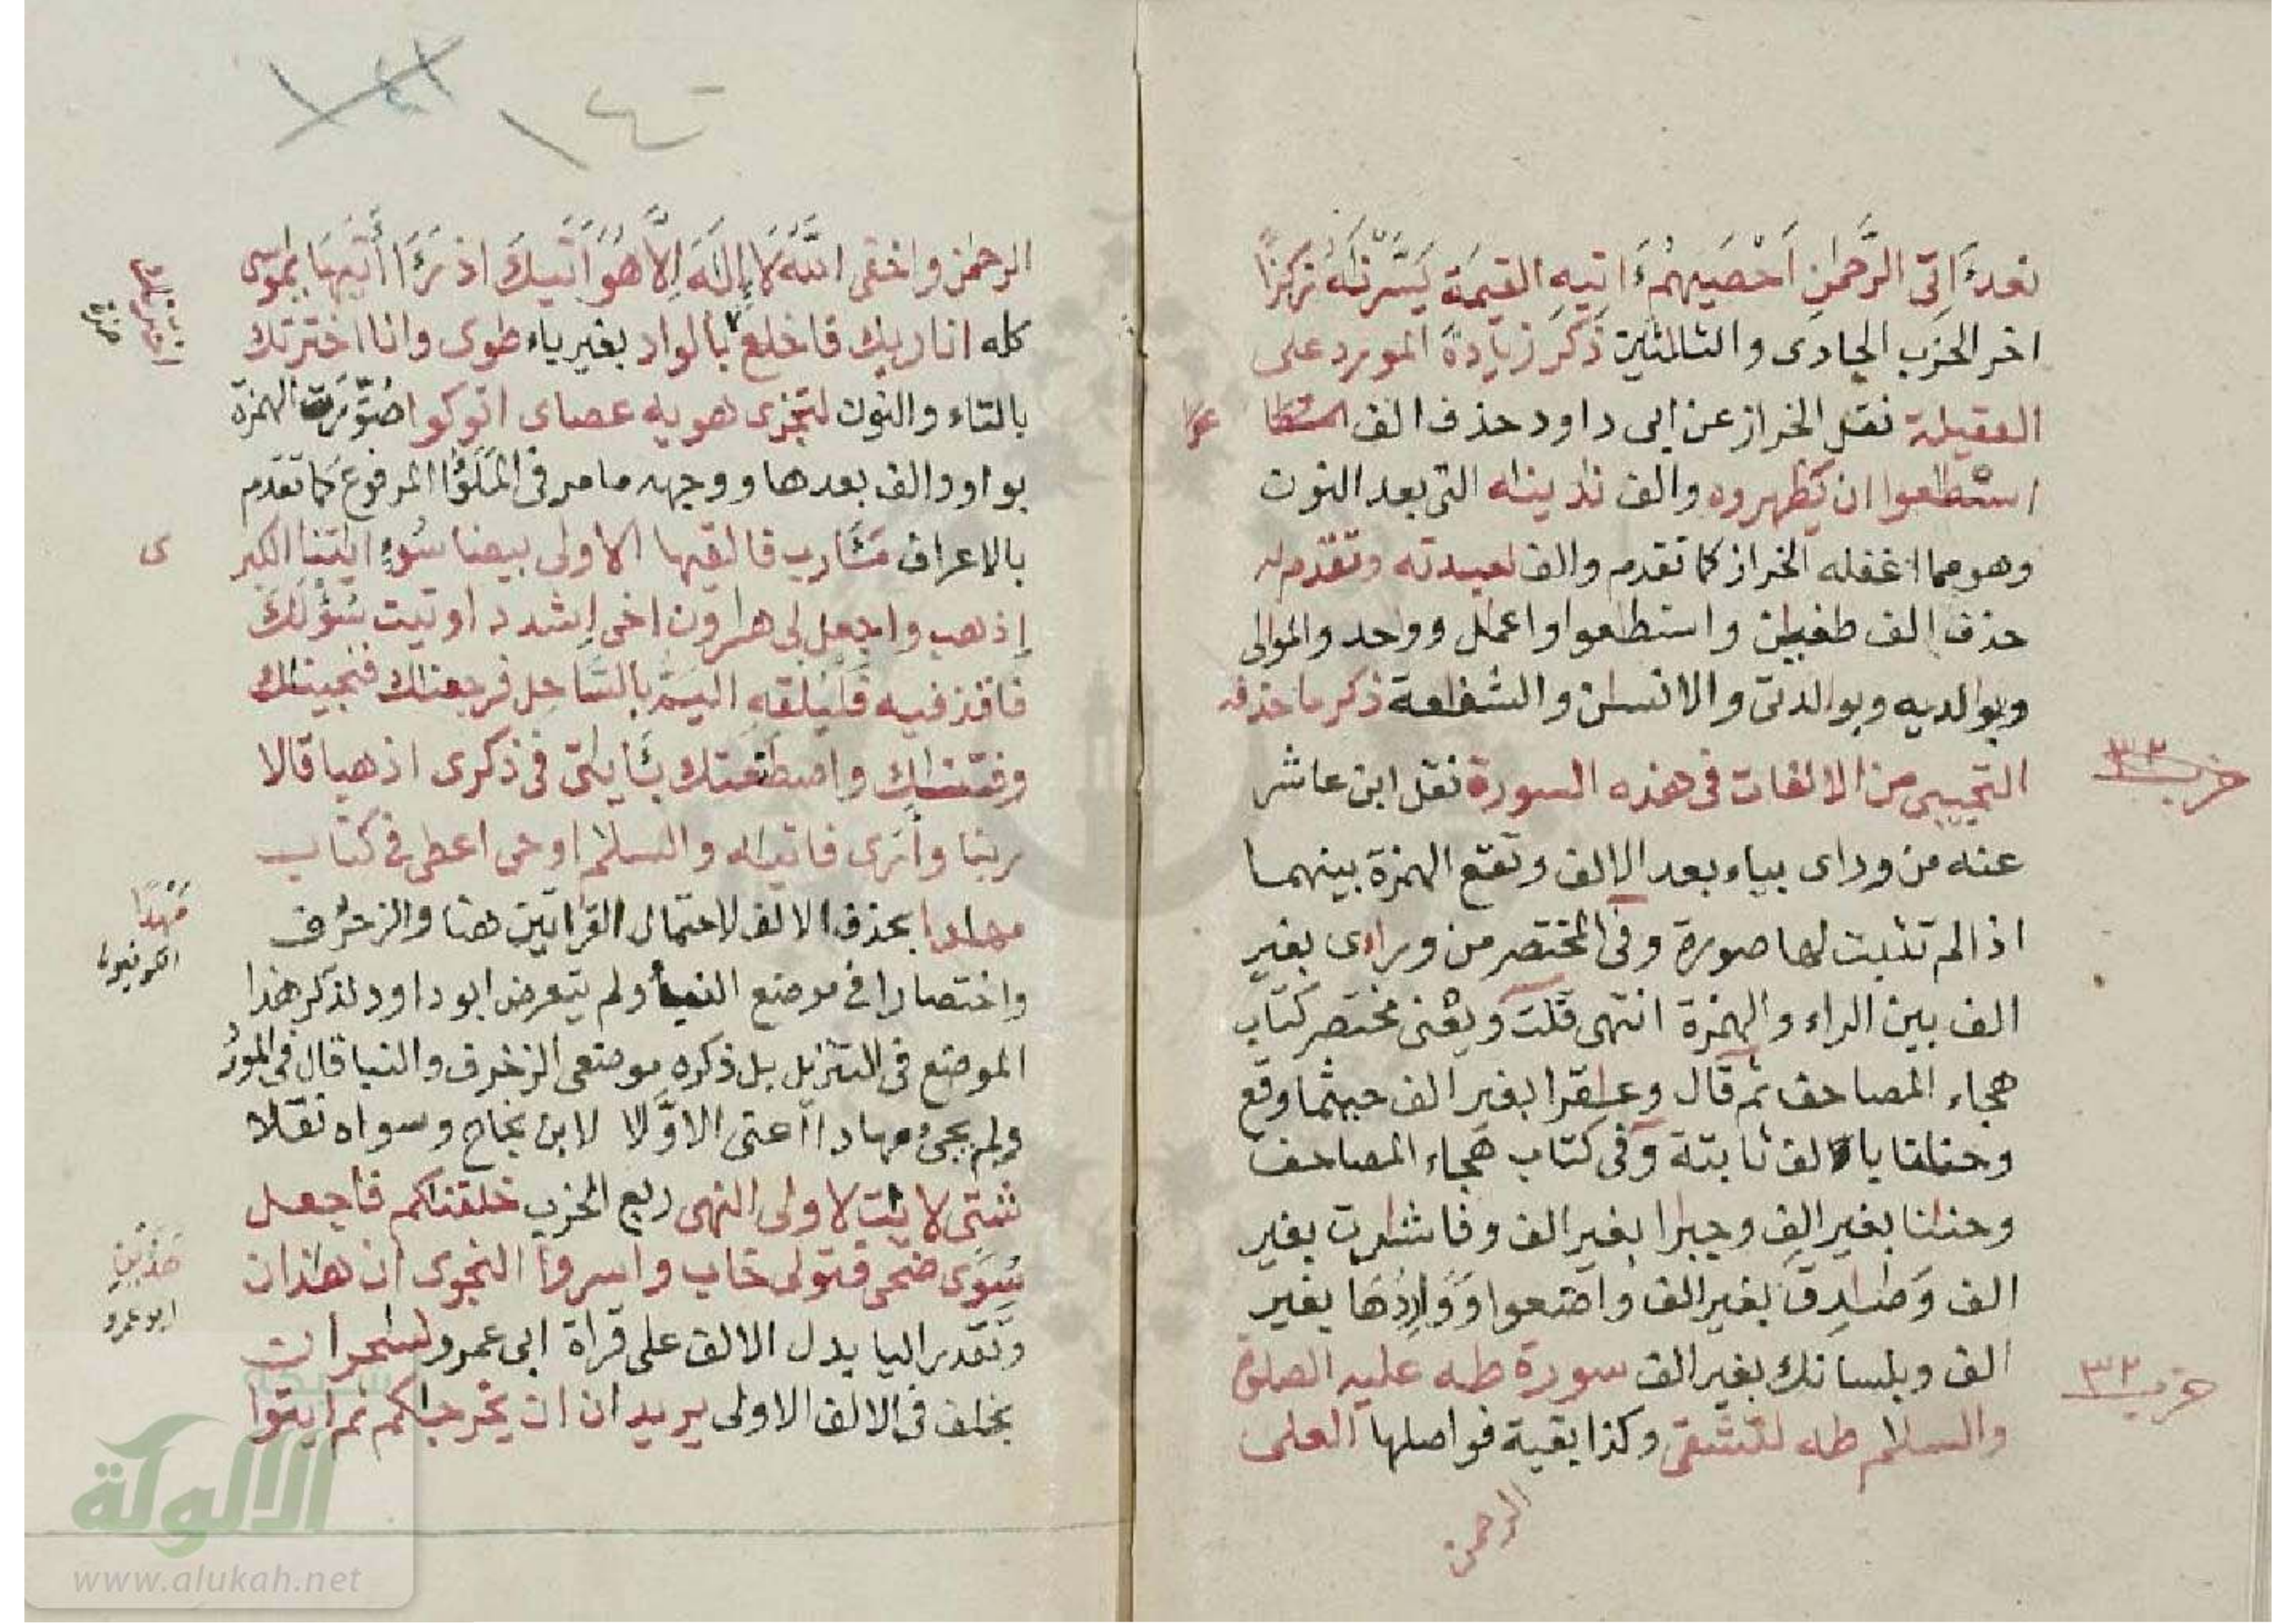 نعد ءاتى الرحمان احصيهم ءاتيه القيمة يسرناه ركزا
اخر الحزب الحادى والثلاثين ذكر زيادة المورد على
العقيلة نقل الخراز عن ابى داود حذف الف
اسطعوا ان يظهروه والف لدينه التى بعد النون
وهو مما اغفله الخراز كما تقدم والف لعبدته وتقدم له
حذف الف طغين واستطعوا واعمل وواحد والموالى
وبوالديه وبوالدتى والانسن والشفعة ذكر ما حذفه
حزب ٣٢
التجيبى من الالفات فى هذه السورة نقل ابن عاشر
عنه من وراى بياء بعد الالف وتقع الهمزة بينهما
اذ الم تثبت لها صورة وفى المختصر من وراى بغير
الف بين الراء والهمزة انتهى قلت ويعنى مختصر كتاب
هجاء المصاحف ثم قال وعقرا بغير الف حيثما وقع
وحنانا بالف ثابتة وفى كتاب هجاء المصاحف
وحننا بغير الف وجبرا بغير الف وفاشرت بغير
الف وصدق بغير الف واضعوا وواردها بغير
الف وبلسانك بغير الف سورة طه عليه الصلوة
حزب ٣٢
والسلام طه لتشقى وكذا بقية فواصلها العلى
الرحمن
١٤٠
الرحمن واخفى الله لا إله إلا هو أتيك اذ رءا أتيها يموسى
كله انا ربك فاخلع بالواد بغير ياء طوى وانا اخترتك
اخترناك
حمزة
بالتاء والنون لتجزى هويه عصاى اتوكوا صورت الهمزة
بواو والف بعدها ووجهه ما مر فى الملؤا المرفوع كما تقدم
بالاعراف مـارب فالقيها الاولى بيضا سوء ايتنا الكبر
ى
إذهب واجعل لى هارون اخى إشدد اوتيت سؤلك
فاقذفيه فليلقه اليم بالساحل فرجعناك فنجيناك
وفتناك واصطنعتك بـايتى فى ذكرى اذهبا قالا
ربنا وأرى فاتياه والسلام اوحى اعطى فى كتاب
مهادا بحذف الالف لاحتمال القراتين هنا والزخرف
مهدا
الكوفيون
واختصارا فى موضع النبأ ولم يتعرض ابو داود لذكر هذا
الموضع فى التنزيل بل ذكره موضعى الزخرف والنبا قال فى المورد
ولم يجئ مهادا اعنى الاولا لابن نجاح وسواه نقلا
شتى لايت لاولى النهى ربع الحزب خلقناكم فاجعل
سوى ضحى فتولى خاب واسروا النجوى ان هاذان
هذين
ابو عمرو
وتقدير اليا بدل الالف على قراة ابى عمرو لسحران
بخلف فى الالف الاولى يريدان ان يخرجاكم ثم ايتوا
شبكة
الألوكة
www.alukah.net